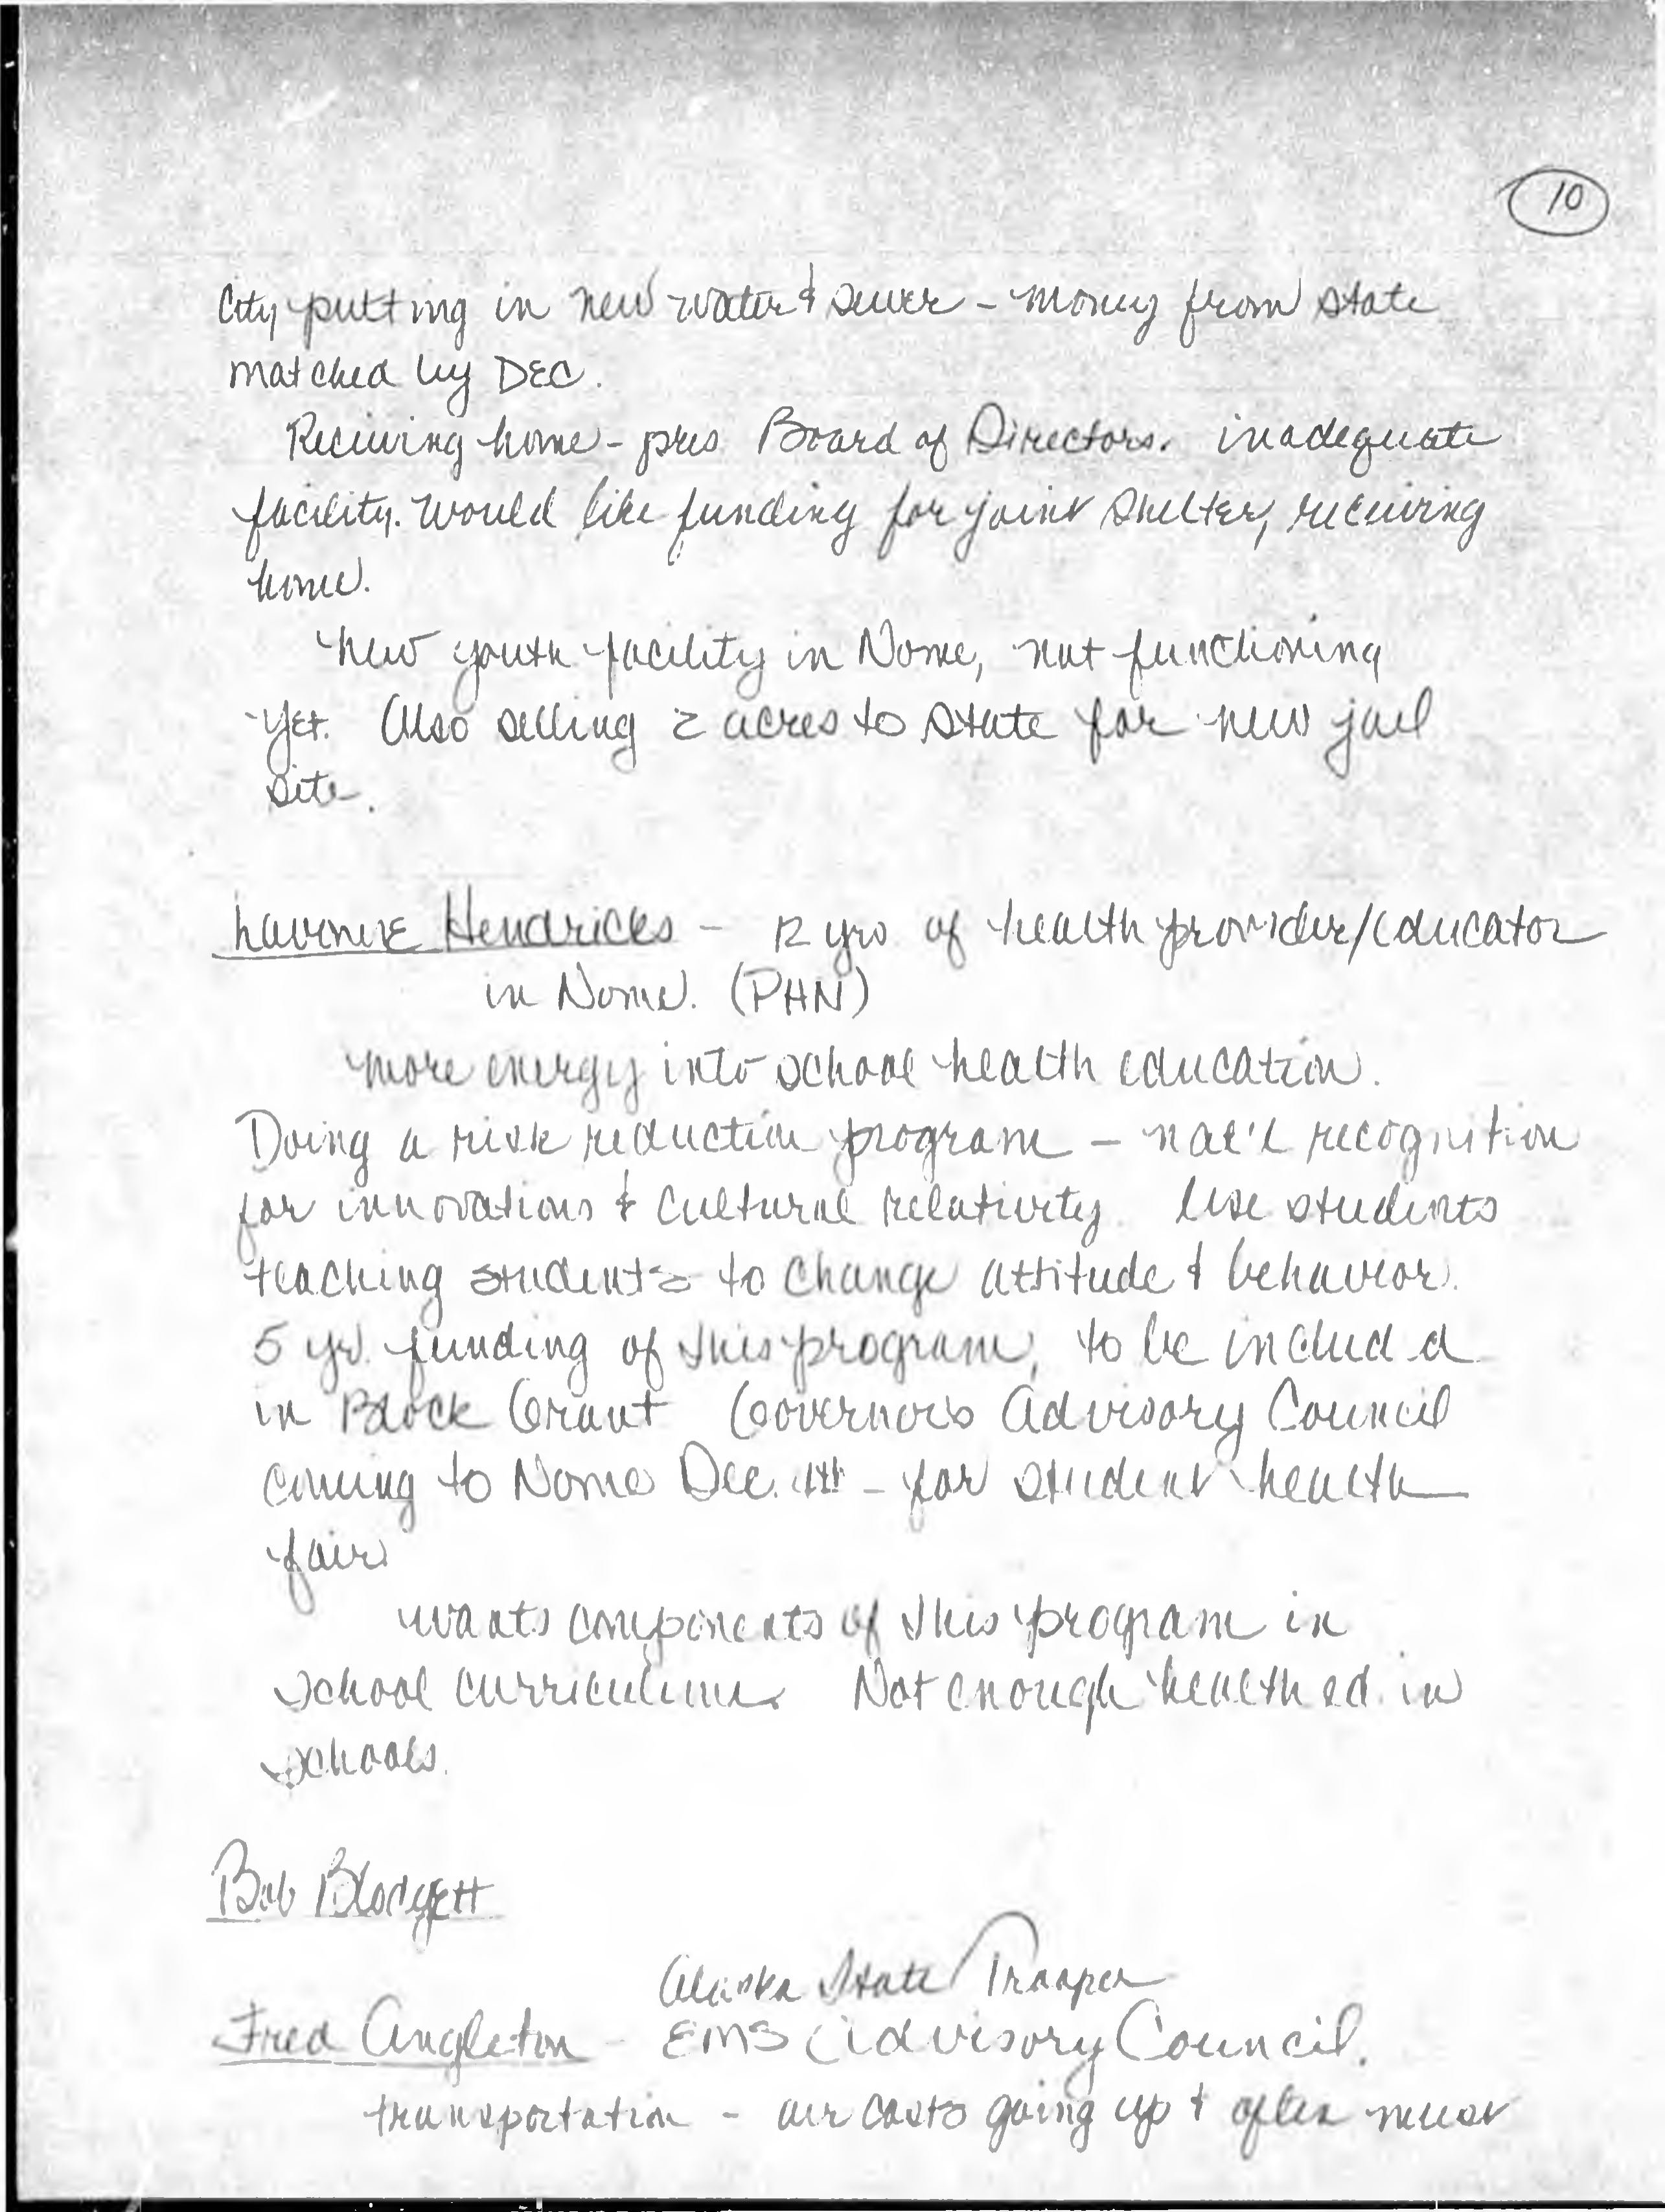 10
City putting in new water & sewer - money from state
matched by DEC.
Receiving home - pres Board of Directors. inadequate
facility. Would like funding for joint shelter, receiving
home.
New youth facility in Nome, not functioning
yet. Also selling 2 acres to state for new jail
site.
Hendricks - 12 yrs of health provider/educator
in Nome. (PHN)
more energy into school health education.
Doing a risk reduction program - nat'l recognition
for innovations & cultural relativity. Use students
teaching students to change attitude & behavior.
5 yr. funding of this program, to be includ d
in Block Grant Governor's Advisory Council
coming to Nome Dec. - for student health
fair.
wants components of this program in
school curriculum. Not enough health ed. in
schools.
Bob Blodgett
Alaska State Trooper
Fred Angleton - EMS Advisory Council.
transportation - air costs going up & often must